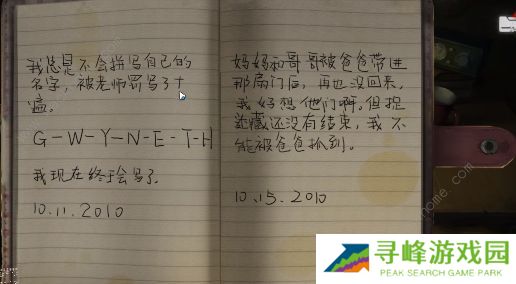 我总是不会拼写自己的
名字，被老师罚写了十
遍。
G-W-Y-N-E-T-H
我现在终于会写了。
10.11.2010
妈妈和哥哥被爸爸带进
那扇门后，再也没回来，
我好想他们啊。但捉
迷藏还没有结束，我不
能被爸爸抓到。
10.15.2010
寻峰游戏园
PEAK SEARCH GAME PARK